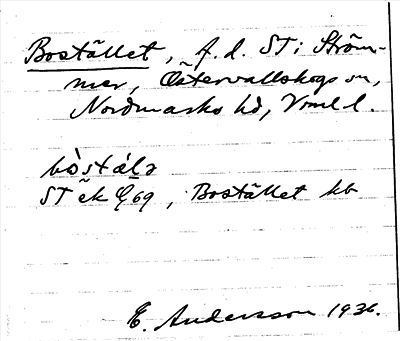 Bostället, f.d. ST i Ström-
mer, Östervallskogs sn,
Nordmarks hd, Vrml l.
bòstälə
ST ek Q69, Bostället kb
E. Andersson 1936.